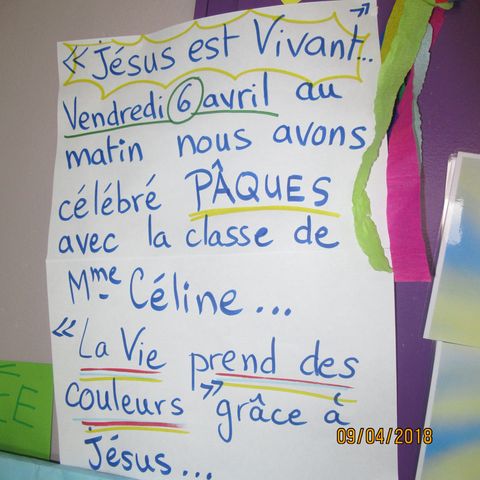 « Jésus est Vivant... »
Vendredi 6 avril au
matin nous avons
célébré PÂQUES
avec la classe de
Mme Céline...
« La Vie prend des
couleurs » grâce à
Jésus...
09/04/2018